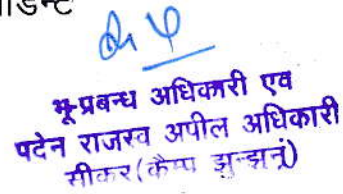 भू-प्रबन्ध अधिकारी एव
पदेन राजस्व अपील अधिकारी
सीकर (कैम्प झुन्झुनूं)